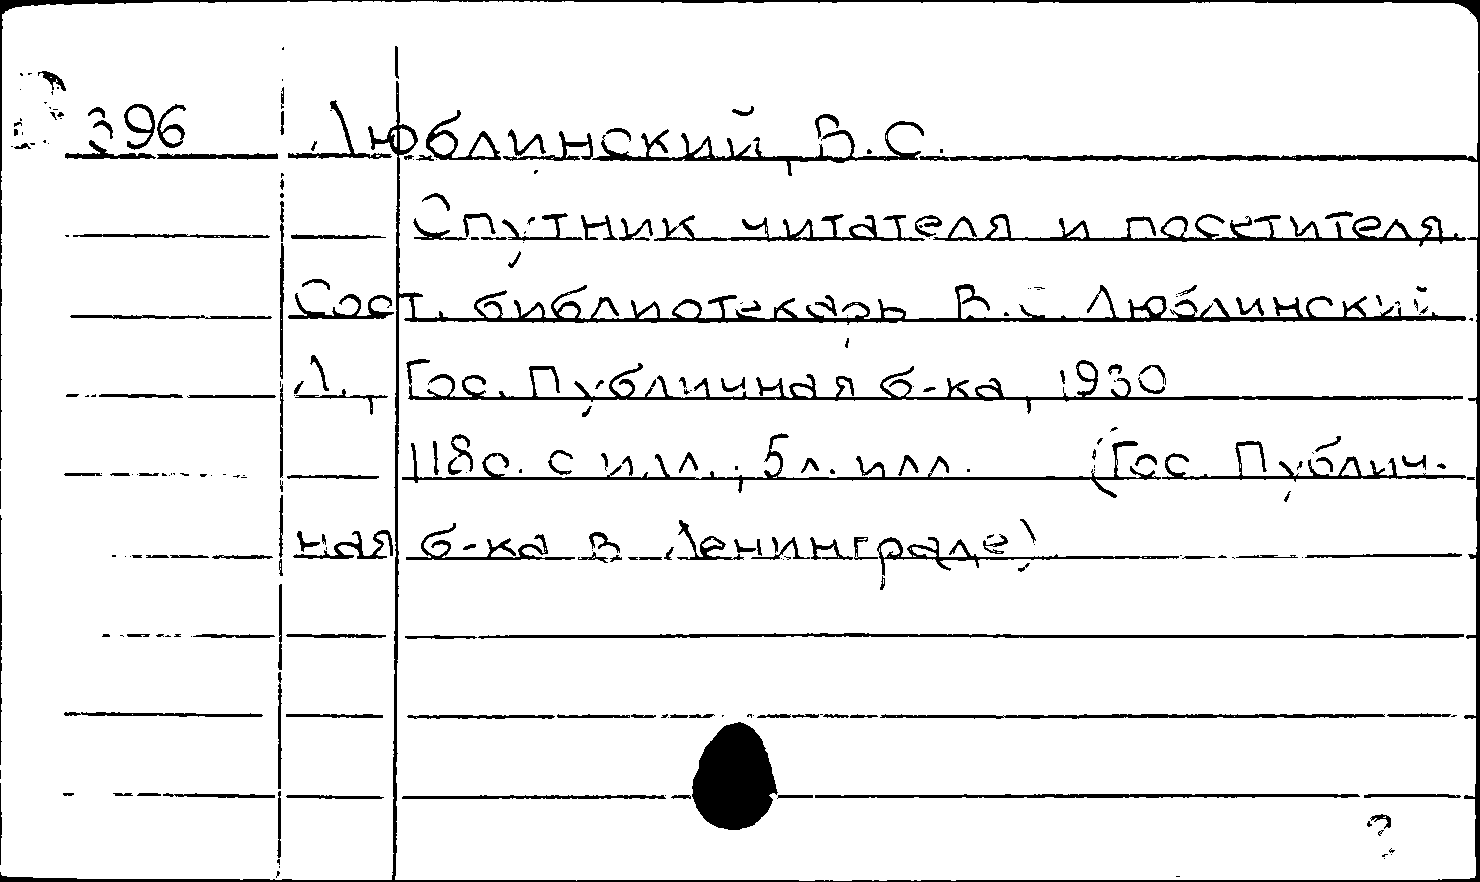 396 Люблинский, В.С.
Спутник читателя и посетителя.
Сост. библиотекарь В.С. Люблинский
Л., Гос. Публичная б-ка, 1930
118с. с илл., 5л. илл. (Гос. Публич-
ная б-ка в Ленинграде)
?